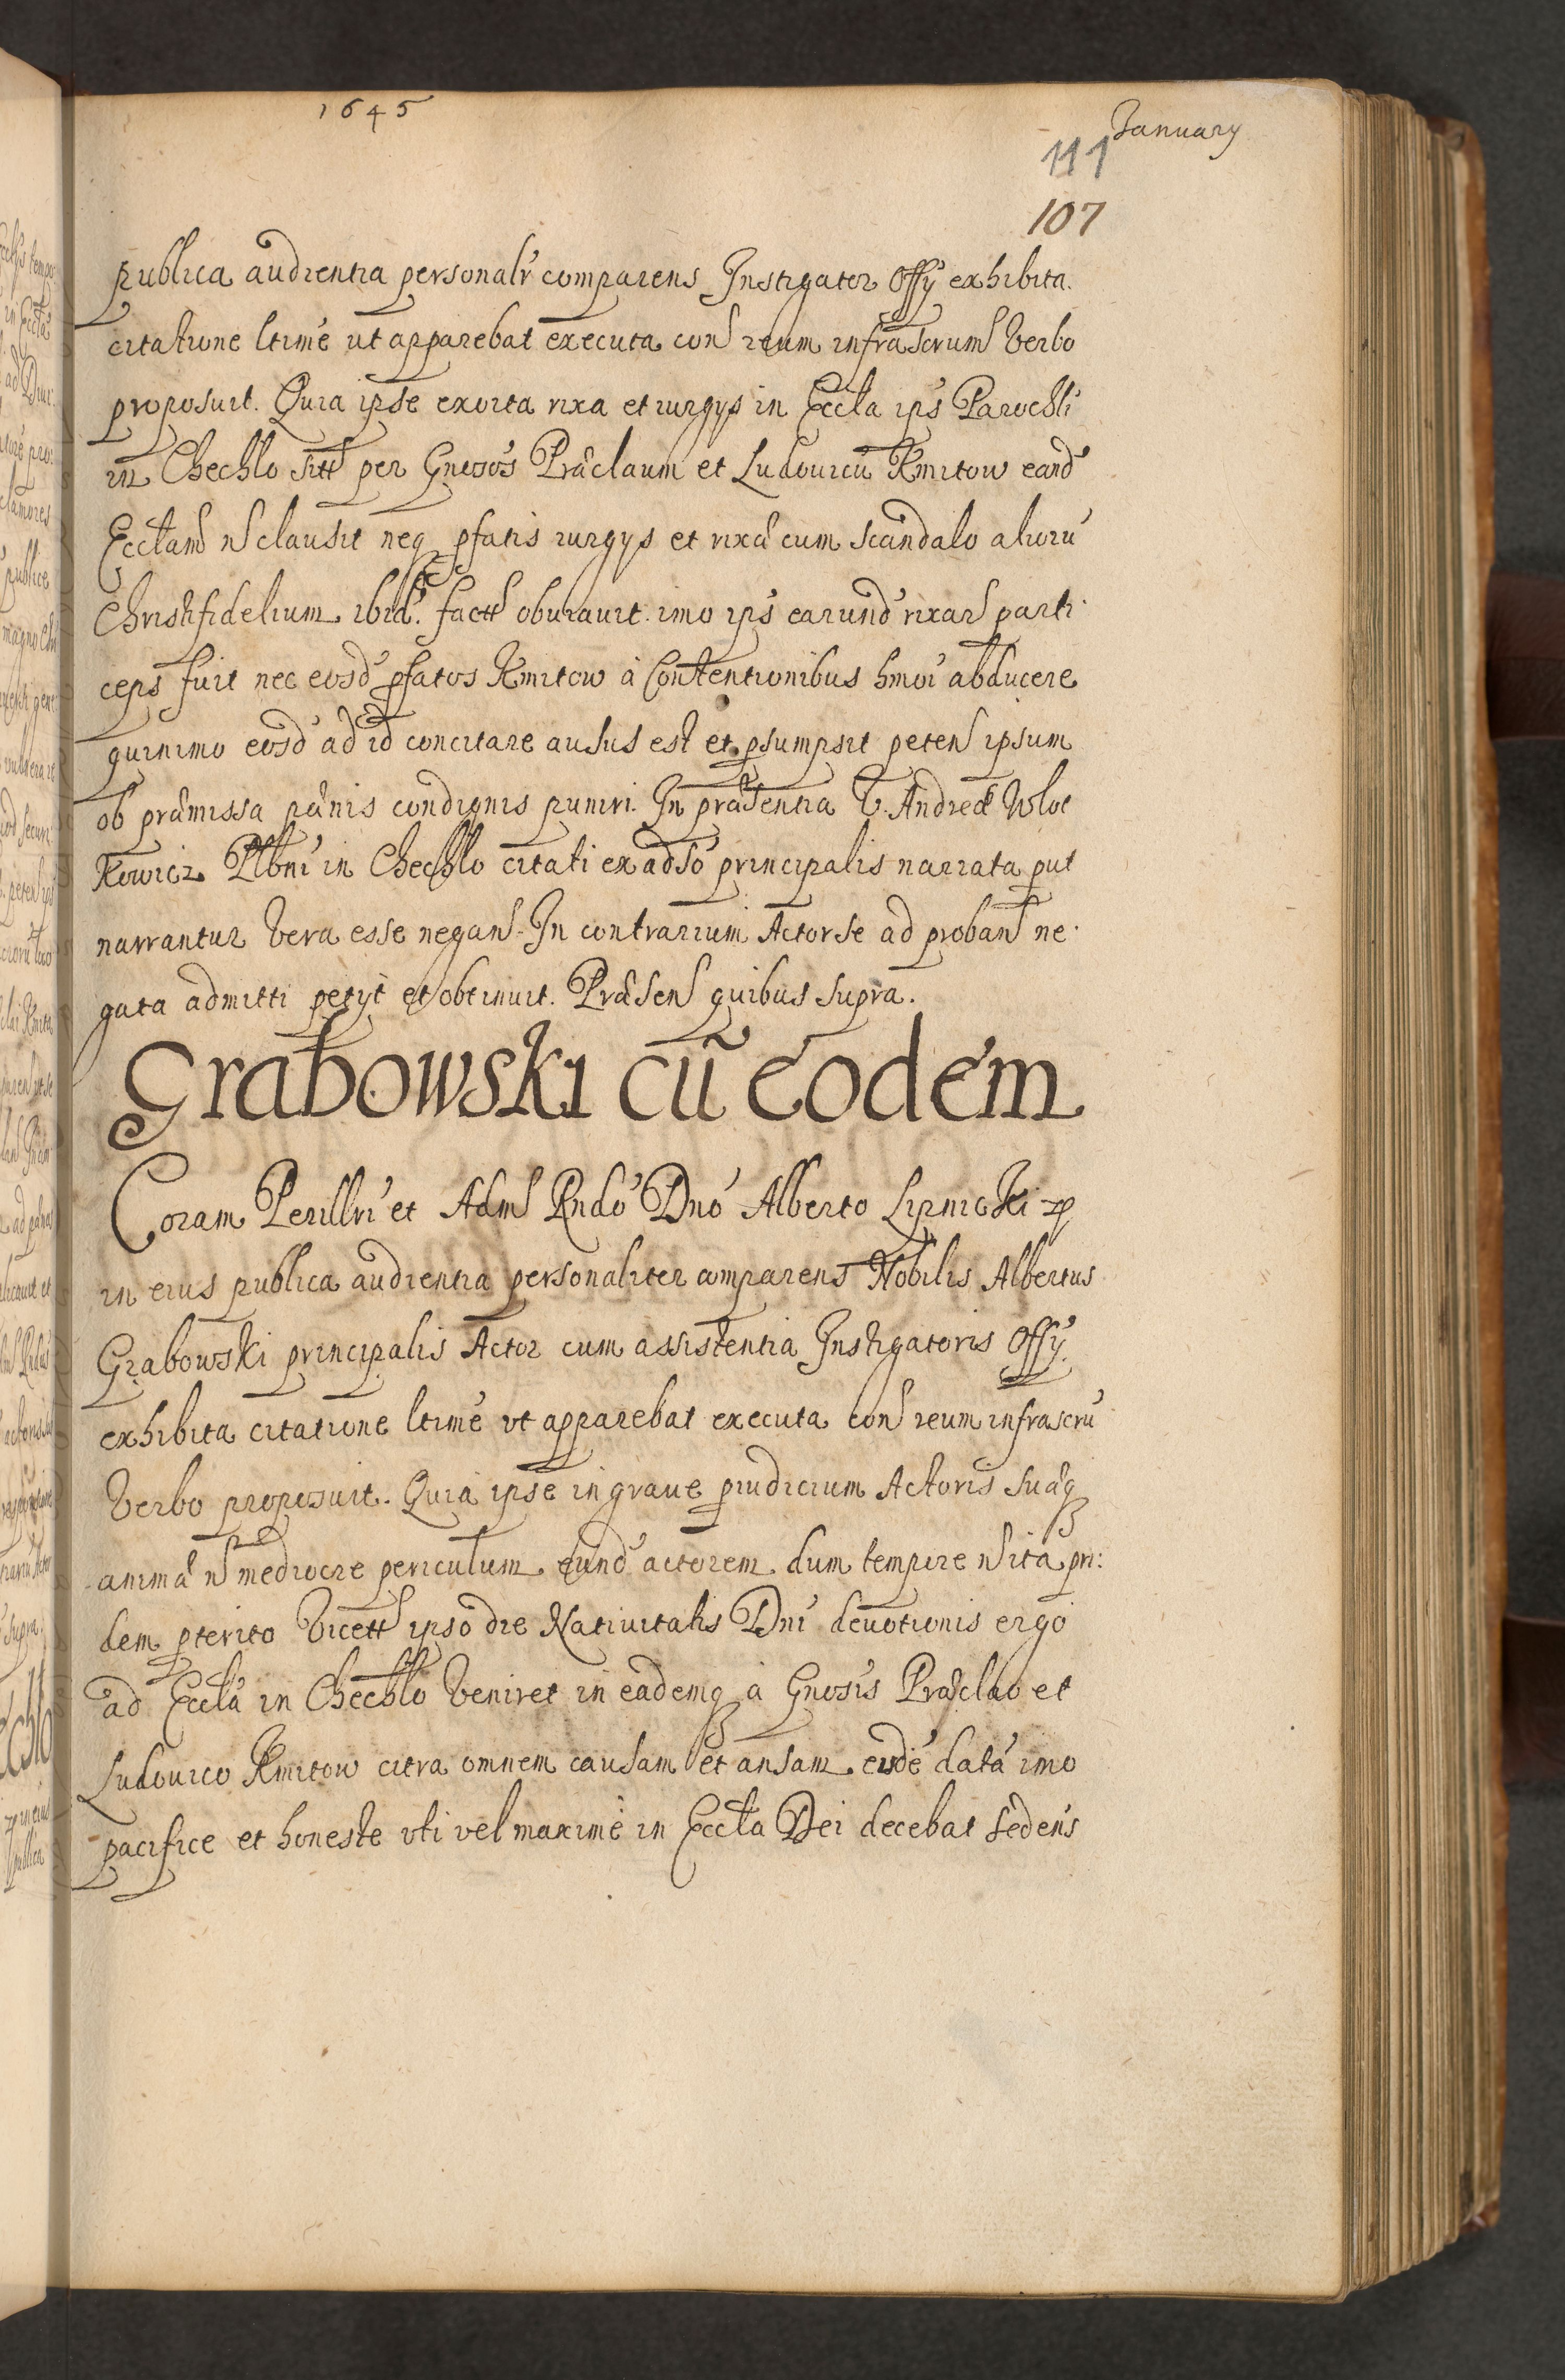 1645
January
111
107
publica audientia personalr comparens Instigator Offy exhibita
citatione ltime ut apparebat executa con reum infrascrum Verbo
proposuit. Quia ipse exorta rixa et iurgys in Eccla ips Parochli
in Chechlo sitt per Gnosos Præclaum et Ludouicū Kmitow eand
Ecclam n clausit neq pfatis iurgys et rixæ cum scandalo alioru
Christifidelium ibid. factt obuiauit. imo ips earund rixar parti
ceps fuit nec eosd pfatos Kmitow à Contentionibus hmoi abducere
quinimo eosd ad id concitare ausus est et psumpsit peten ipsum
ob præmissa pænis condignis puniri. In præsentia V. Andreæ Wlot
kowicz Plbni in Chechlo citati ex adso principalis narrata put
narrantur Vera esse negan. In contrarium Actor se ad proban ne
gata admitti petyt et obtinuit. Præsen quibus supra.
Grabowski cū eodem
Coram Perillri et Adm Rndo Dno Alberto Lipnicki
in eius publica audientia personaliter comparens Nobilis Albertus
Grabowski principalis Actor cum assistentia Instigatoris Offy
exhibita citatione ltime vt apparebat executa con reum infrascru
Verbo proposuit. Quia ipse in graue piudicium Actoris suæq
animæ n mediocre periculum eund actorem dum tempore n ita pri:
dem pterito Vicett ipso die Natiuitatis Dni deuotionis ergo
ad Eccla in Chechlo Veniret in eademq à Gnosis Præclao et
Ludouico Kmitow citra omnem causam et ansam eisde data imo
pacifice et honeste vti vel maxime in Eccla Dei decebat sedens